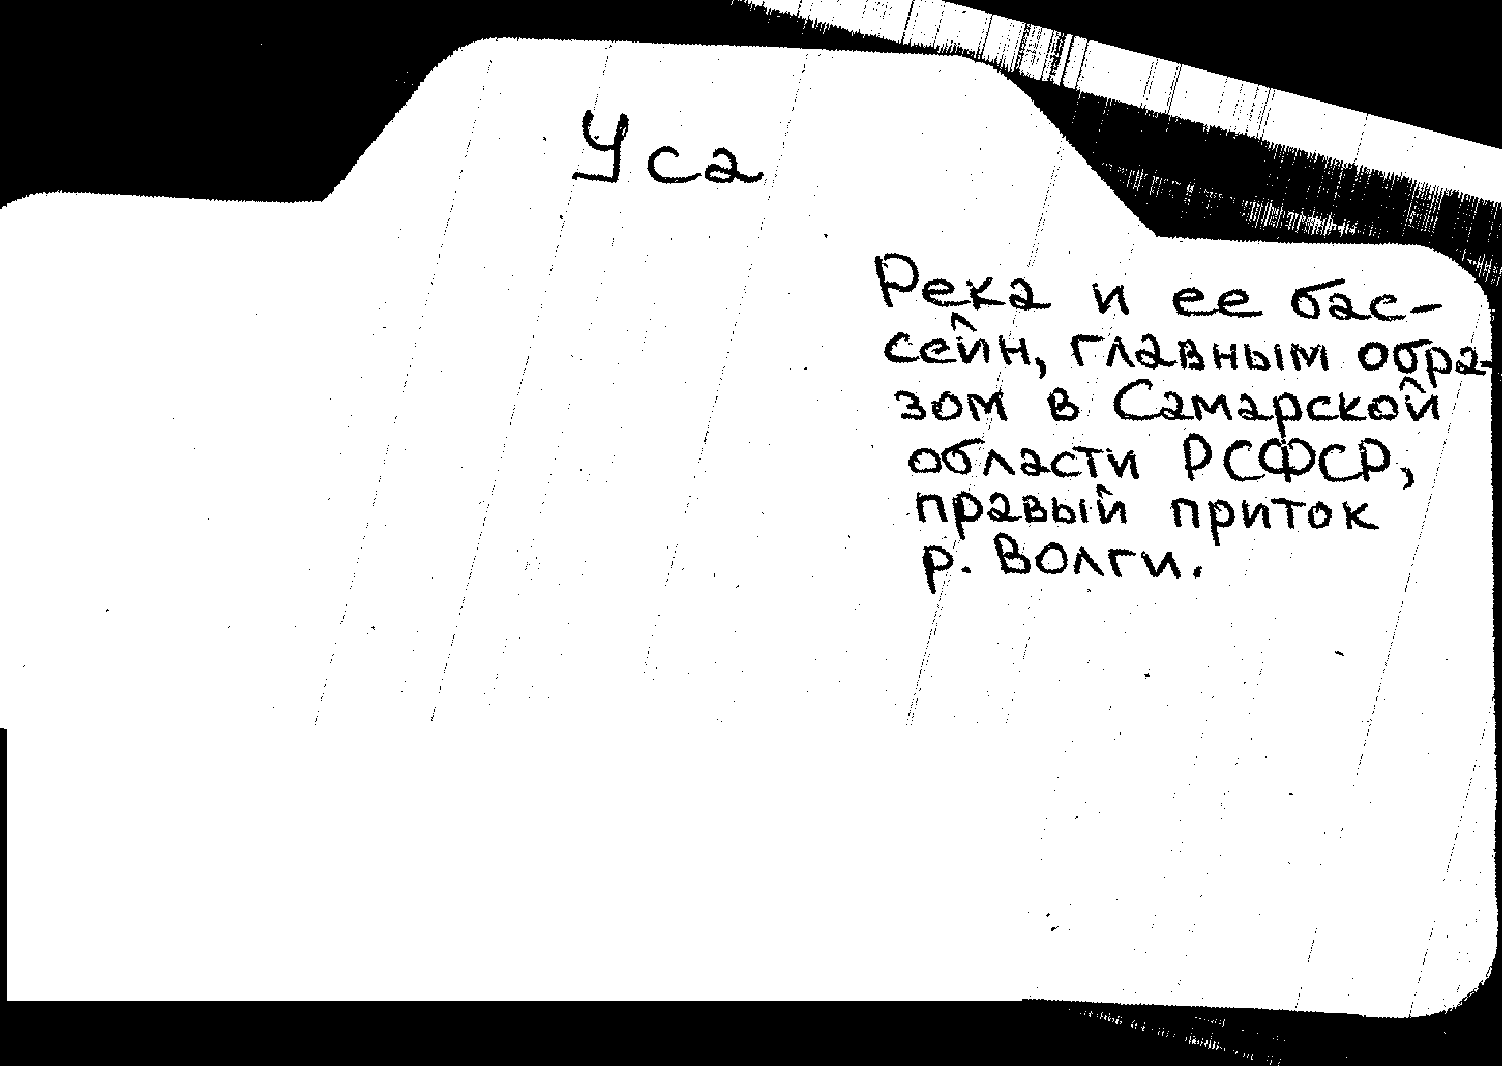 Уса
Река и ее бас-
сейн, главным обра-
зом в Самарской
области РСФСР,
правый приток
р. Волги.